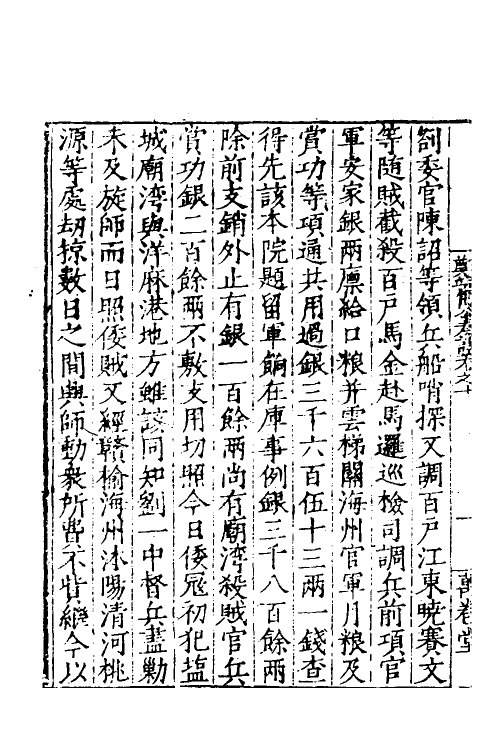 劄委官陳詔等領兵船哨探又調百戶江東曉賽文
等隨賊截殺百戶馬金赴馬邏巡檢司調兵前項官
軍安家銀兩廪給口粮并雲梯關海州官軍月粮及
賞功等項通共用過銀三千六百伍十三兩一錢查
得先該本院題留軍餉在庫事例銀三千八百餘兩
除前支銷外止有銀一百餘兩尚有廟湾殺賊官兵
賞功銀二百餘兩不敷支用切照今日倭冦初犯塩
城廟湾與洋麻港地方雖該同知劉一中督兵盡勦
未及旋師而日照倭賊又經贛榆海州沭陽清河桃
源等處刼掠數日之間與師動衆所費不貲縱今以
一
萬卷堂